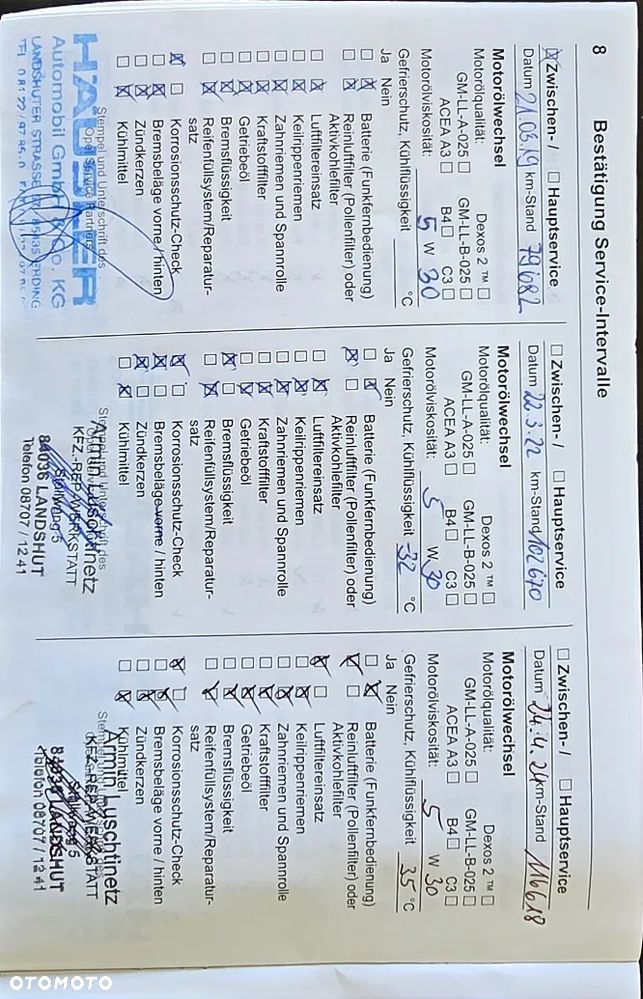 8
Bestätigung Service-Intervalle
Zwischen- / Hauptservice
Datum 21.03.19 km-Stand 79682
Motorölwechsel
Motorölqualität: Dexos 2 ™
GM-LL-A-025 GM-LL-B-025
ACEA A3 B4 C3
Motorölviskosität: 5 W 30
Gefrierschutz, Kühlflüssigkeit °C
Ja Nein
Batterie (Funkfernbedienung)
Reinluftfilter (Pollenfilter) oder
Aktivkohlefilter
Luftfiltereinsatz
Keilrippenriemen
Zahnriemen und Spannrolle
Kraftstofffilter
Getriebeöl
Bremsflüssigkeit
Reifenfüllsystem/Reparatur-
satz
Korrosionsschutz-Check
Bremsbeläge vorne / hinten
Zündkerzen
Kühlmittel
Stempel und Unterschrift des
Opel Service Partners
HÄUSLER
Automobil GmbH & Co. KG
LANDSHUTER STRASSE
ERDING
Zwischen- / Hauptservice
Datum 22.3.22 km-Stand 102670
Motorölwechsel
Motorölqualität: Dexos 2 ™
GM-LL-A-025 GM-LL-B-025
ACEA A3 B4 C3
Motorölviskosität: 5 W 30
Gefrierschutz, Kühlflüssigkeit -32 °C
Ja Nein
Batterie (Funkfernbedienung)
Reinluftfilter (Pollenfilter) oder
Aktivkohlefilter
Luftfiltereinsatz
Keilrippenriemen
Zahnriemen und Spannrolle
Kraftstofffilter
Getriebeöl
Bremsflüssigkeit
Reifenfüllsystem/Reparatur-
satz
Korrosionsschutz-Check
Bremsbeläge vorne / hinten
Zündkerzen
Kühlmittel
Armin Luschtinetz
KFZ.-REP.WERKSTATT
84036 LANDSHUT
Telefon 08707 / 12 41
Zwischen- / Hauptservice
Datum 24.4.24 km-Stand 116618
Motorölwechsel
Motorölqualität: Dexos 2 ™
GM-LL-A-025 GM-LL-B-025
ACEA A3 B4 C3
Motorölviskosität: 5 W 30
Gefrierschutz, Kühlflüssigkeit 35 °C
Ja Nein
Batterie (Funkfernbedienung)
Reinluftfilter (Pollenfilter) oder
Aktivkohlefilter
Luftfiltereinsatz
Keilrippenriemen
Zahnriemen und Spannrolle
Kraftstofffilter
Getriebeöl
Bremsflüssigkeit
Reifenfüllsystem/Reparatur-
satz
Korrosionsschutz-Check
Bremsbeläge vorne / hinten
Zündkerzen
Kühlmittel
Armin Luschtinetz
KFZ.-REP.WERKSTATT
84036 LANDSHUT
Telefon 08707 / 12 41
OTOMOTO